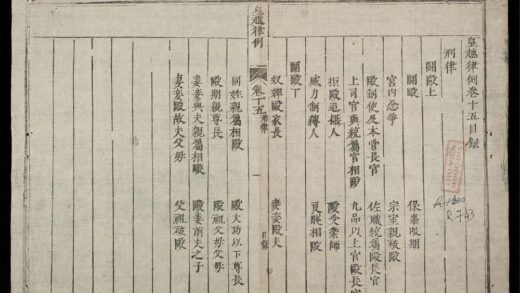 皇越律例卷十五目錄
刑律
鬬毆上
鬬毆 保辜限期
宮內忿爭 宗室親被毆
毆制使及本管長官 佐職統屬毆長官
上司官與統屬官相毆 九品以上官毆長官
拒毆追攝人 毆受業師
威力制縛人 良賤相毆
鬬毆下
奴婢毆家長 妻妾毆夫
皇越律例 卷十五 刑律 一 目錄
同姓親屬相毆 毆大功以下尊長
毆期親尊長 毆祖父母父母
妻妾與夫親屬相毆 毆妻前夫之子
妻妾毆故夫父母 父祖被毆
R.743